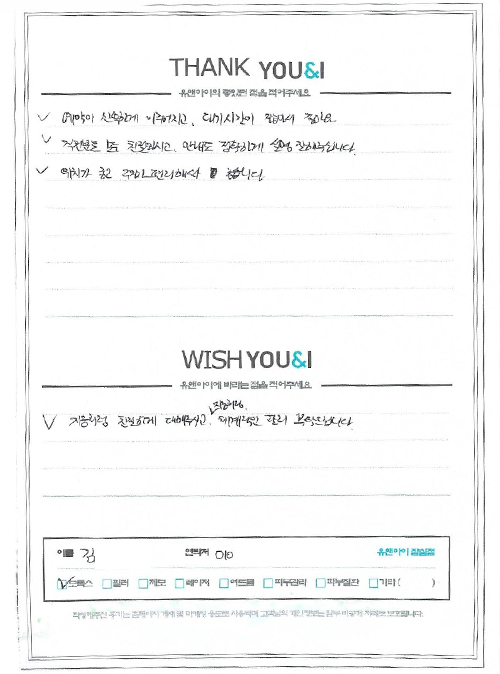 THANK YOU&I
유앤아이의 좋았던 점을 적어주세요
예약이 신속하게 이루어지고, 대기시간이 짧아서 좋아요
직원분들 모두 친절하시고, 안내도 정확하게 설명 잘해주십니다.
위치가 좋고 편리해서 좋습니다.
WISH YOU&I
유앤아이에 바라는 점을 적어주세요
지금처럼
지금처럼 친절하게 대해주시고, 체계적인 관리 부탁드립니다.
이름 김 연락처 010 유앤아이 잠실점
보톡스 필러 제모 레이저 여드름 피부관리 피부질환 기타 ( )
작성해주신 후기는 홈페이지 게재 및 마케팅 용도로 사용되며 고객님의 개인정보는 일부 비공개 처리로 보호됩니다.